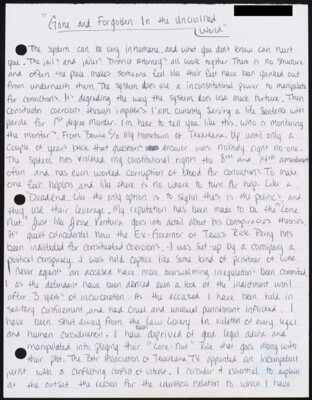 "Gone and Forgotten In the Uncivilized
World"
The system can be very inhumane, and what you don't know can hurt
you. The jail's and jailer's "District Attorney" all work together. There is no structure
and often the pace makes someone feel like their feet have been yanked out
from underneath them. The system does use a inconstitutional power to manipulate
for convictions. It's degrading the way the system does use black torture. Then
constitutes coercions through inmates. I am currently serving a life sentence with
parole for 1st degree murder. I'm here to tell you like this, who is monitoring
the monitor? From Bowie Co my hometown of Texarkana. Up until only a
couple of years back that question answer was nobody right no one.
The system has violated my constitutional rights the 8th and 14th amendment
often and has even worked corruption of blood for convictions. To make
one feel helpless and like there is no where to turn for help. Like a
Deadend. Like the only option is to sign this is the politics and
they use their leverage. My reputation has been made to be the "Lone
Nut." Just like Jesse Ventura goes into detail about his conspiracies theories.
It's quiet coincidental how the Ex-Governor of Texas Rick Perry has
been indicted for constituted coercions. I was set up by a company a
political conspiracy. I was held captive like some kind of prisoner of war.
Never against an accused have more overwhelming irregulation been committed.
I as the defendant have been denied even a look at the indictment until
after 3 years of incarceration. As the accused I have been held in
solitary confinement, and had cruel and unusual punishment inflicted. I
have been shut away from the Law Library in violation of every legal
and human consideration. I have deprived of good legal advise and
manipulated into playing their "Lone-nut" role that goes along with
their plot. The Bar Association of Texarkana TX appointed an incompetent
jurist with a conflicting conflict of interest. I consider it essential to explain
at the outset the reason for the relentless isolation to which I have